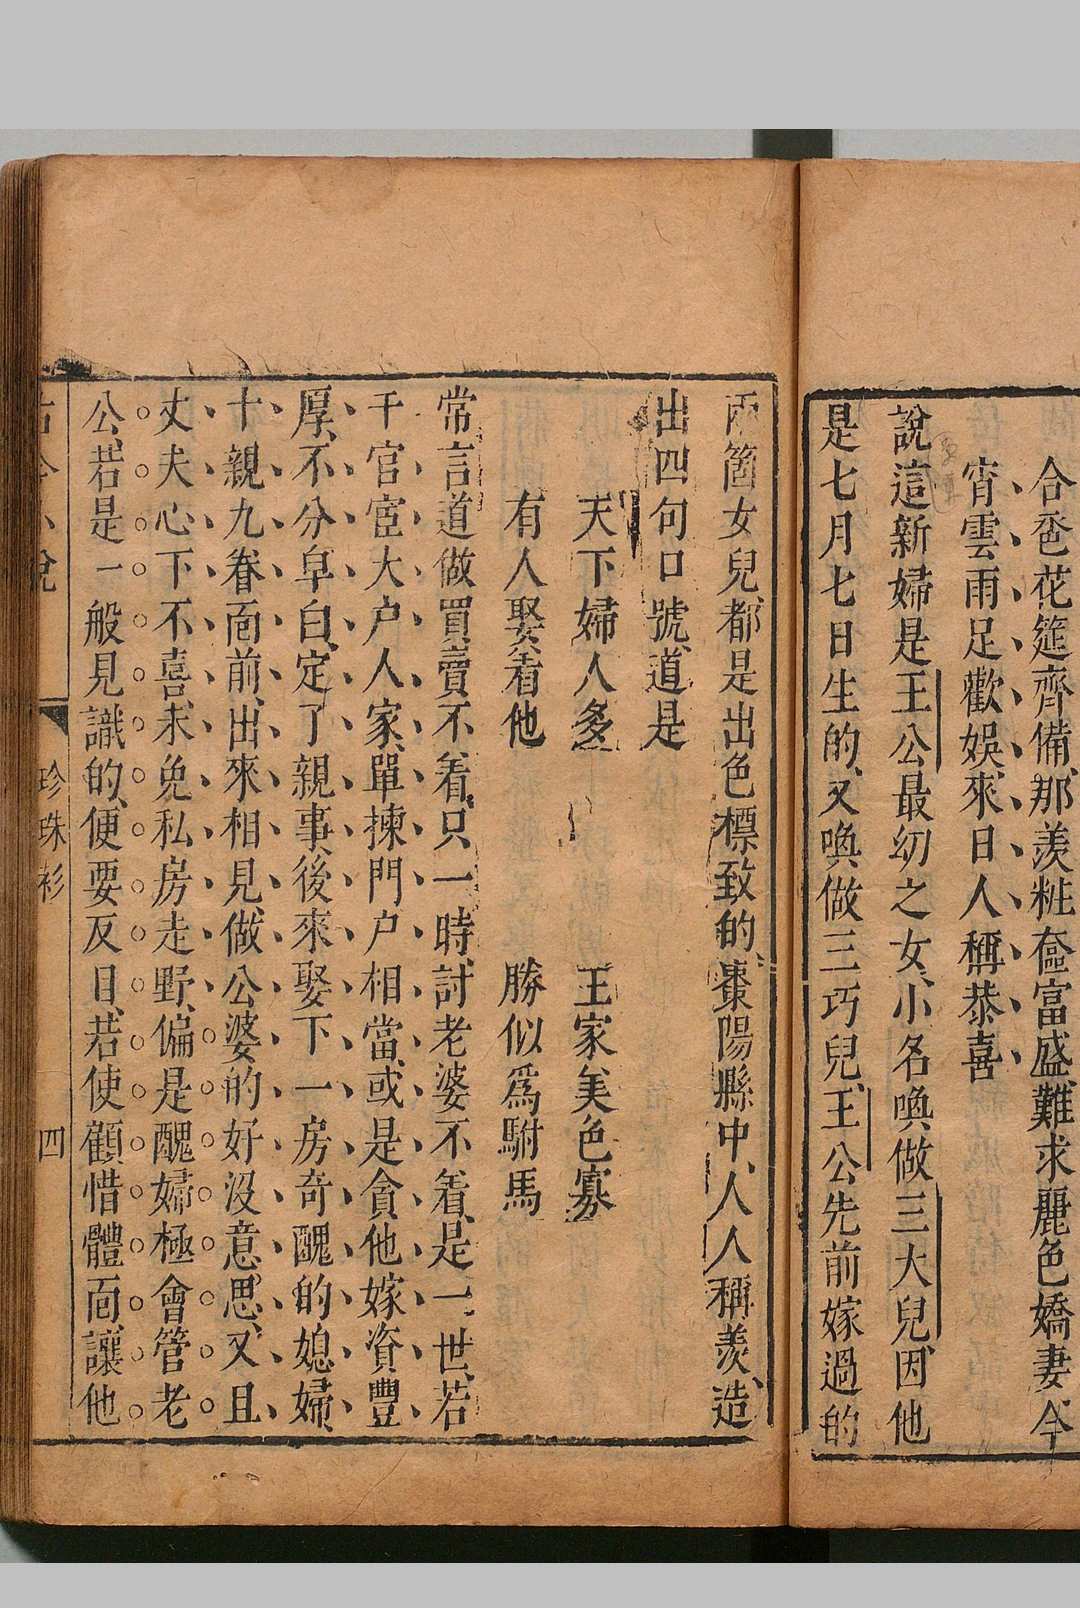 合卺花筵齊備、那羨粧奩富盛、難求麗色嬌妻、今
宵雲雨足歡娛、來日人稱恭喜
說這新婦是王公最幼之女、小名喚做三大兒、因他
是七月七日生的、又喚做三巧兒、王公先前嫁過的
兩箇女兒、都是出色標致的、棗陽縣中、人人稱羨、造
出四句口號、道是
天下婦人多　王家美色寡
有人娶着他　勝似爲駙馬
常言道做買賣不着、只一時、討老婆不着、是一世、若
干官宦大户人家、單揀門户相當、或是貪他嫁資豐
厚、不分皁白、定了親事、後來娶下一房奇醜的媳婦、
十親九眷面前、出來相見、做公婆的好沒意思、又且
丈夫心下不喜、未免私房走野、偏是醜婦極會管老
公、若是一般見識的、便要反目、若使顧惜體面、讓他
古今小說　珍珠衫　四